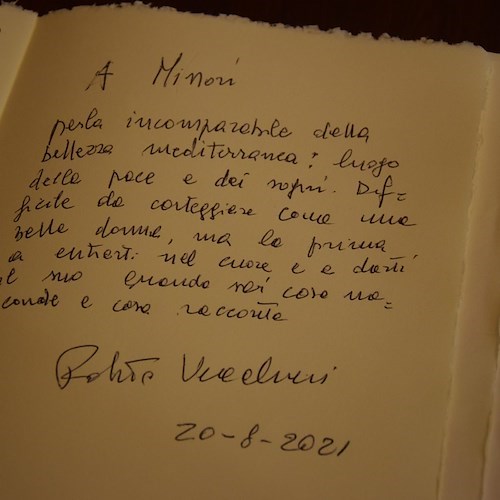 A Minori
perla incomparabile della
bellezza mediterranea: luogo
della pace e dei sogni. Dif=
ficile da corteggiare come una
bella donna, ma la prima
a entrarti nel cuore e a darti
il suo quando sai cosa na=
sconde e cosa racconta
20-8-2021